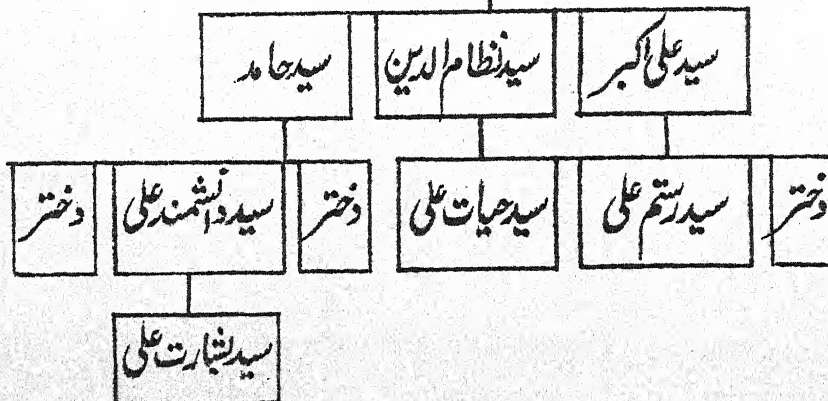 سید علی اکبر	سید نظام الدین	سید حامد
دختر	سید رستم علی	سید حیات علی	دختر	سید دانشمند علی	دختر
سید بشارت علی